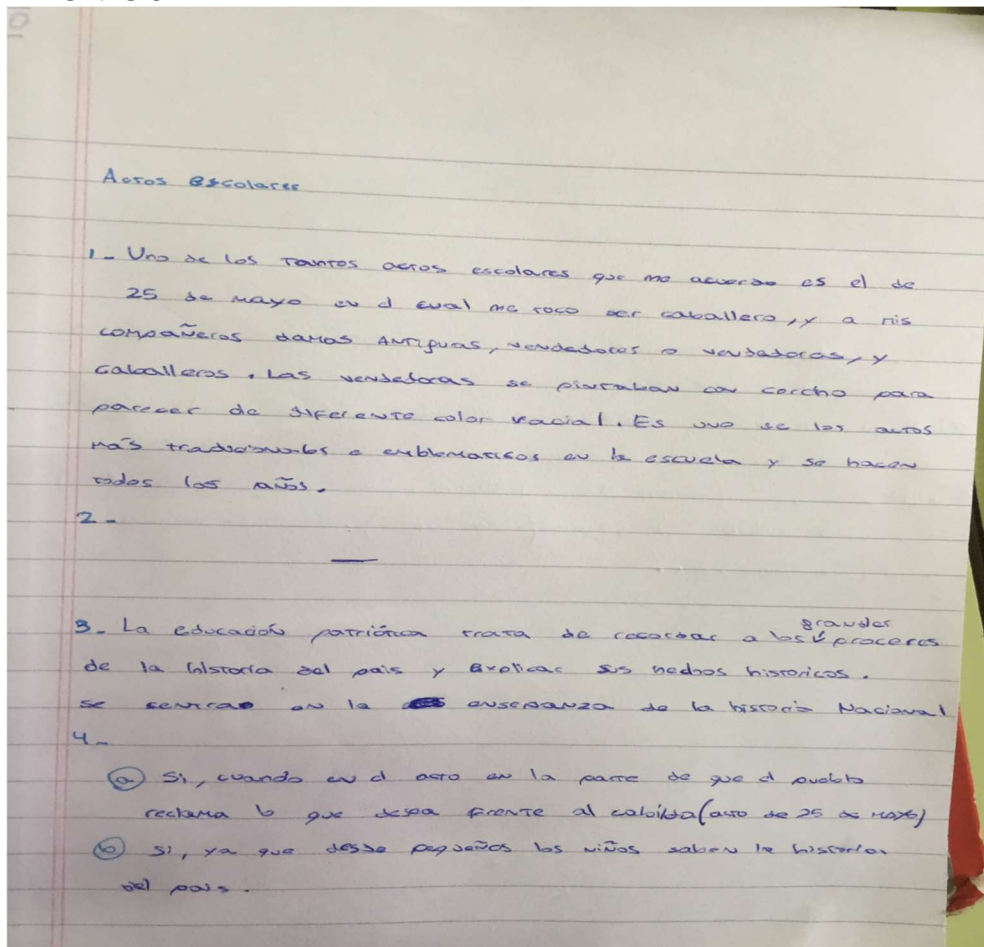 Actos escolares
1- Uno de los tantos actos escolares que me acuerdo es el de
25 de mayo en el cual me toco ser caballero, y a mis
compañeros damas Antiguas, vendedores o vendedoras, y
caballeros. Las vendedoras se pintaban con corcho para
parecer de diferente color racial. Es uno de los actos
más tradicionales o emblematicos en la escuela y se hacen
todos los años.
2-
—
grandes
3- La educación patriótica trata de recordar a los proceres
de la historia del pais y explicar sus hechos historicos.
se centra en la enseñanza de la historia Nacional
4-
a) Si, cuando en el acto en la parte de que el pueblo
reclama lo que desea frente al cabildo (acto de 25 de mayo)
b) Si, ya que desde pequeños los niños saben la historia
del pais.